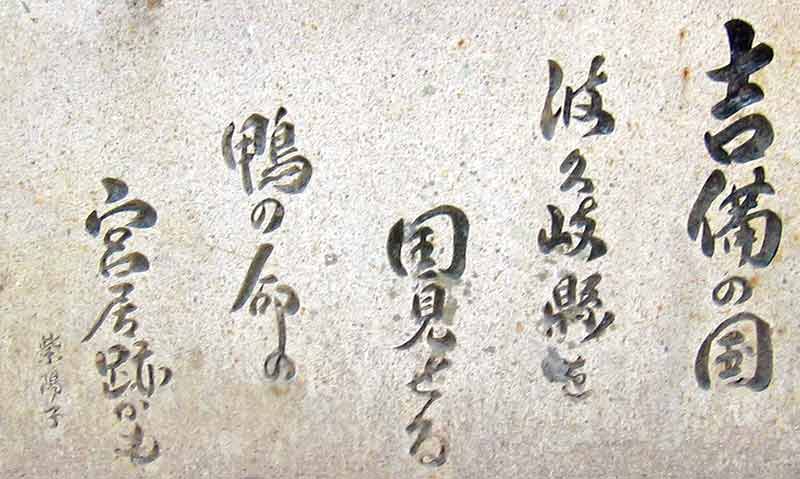 吉備の国
波久岐縣を
国見せる
鴨の命の
宮居跡かも
紫陽子